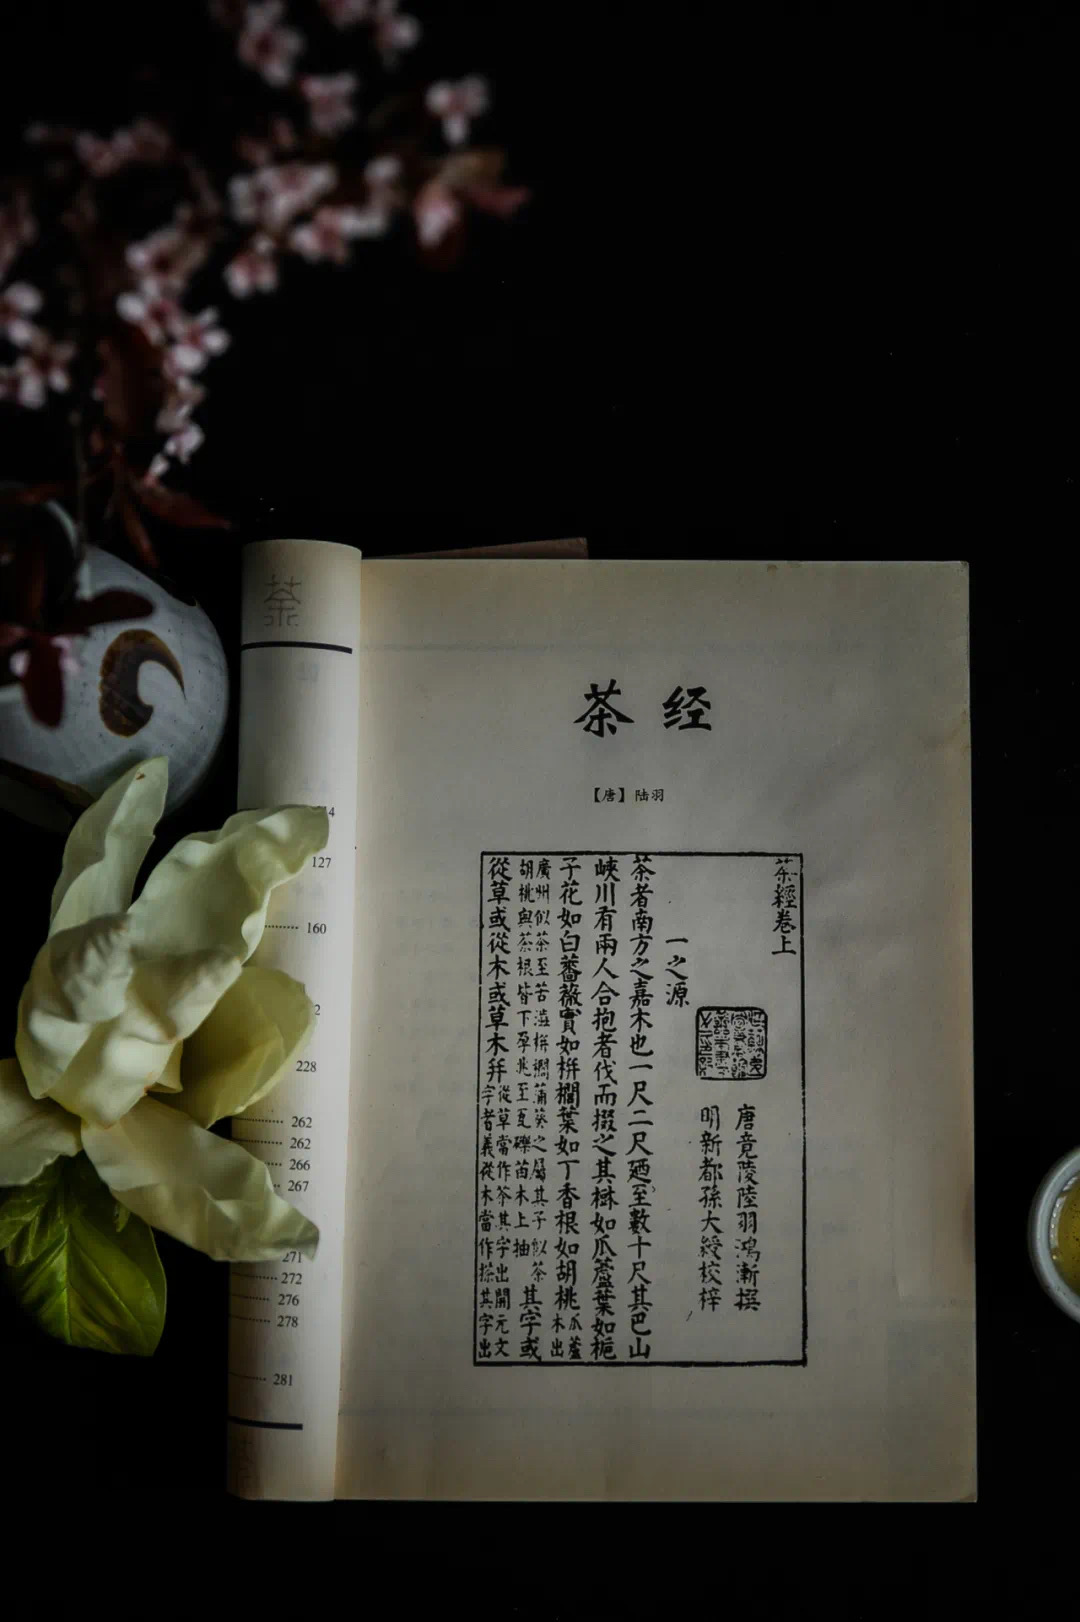 茶
茶 经
【唐】 陆羽
茶經卷上
唐竟陵陸羽鴻漸撰
明新都孫大綬校梓
一之源
茶者南方之嘉木也一尺二尺廼至數十尺其巴山
峽川有兩人合抱者伐而掇之其樹如瓜蘆葉如梔
子花如白薔薇實如栟櫚葉如丁香根如胡桃瓜蘆木出
廣州似茶至苦澁栟櫚蒲葵之屬其子似茶
胡桃與茶根皆下孕兆至瓦礫苗木上抽
其字或
從草或從木或草木并
從草當作茶其字出開元文
字者義從木當作搽其字出
127
160
228
262
262
266
267
271
272
276
278
281